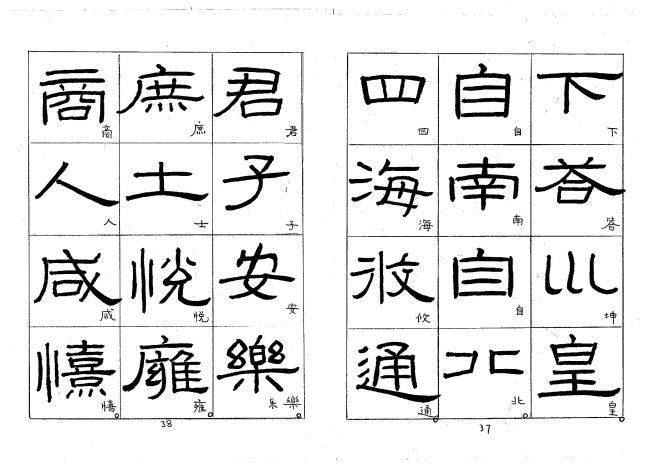 下荅巛皇
下答坤皇
自南自北
自南自北
四海攸通
四海攸通
37
君子安樂
君子安樂乐
庶士悅廱
庶士悅雍
商人咸憘
商人咸憘
38